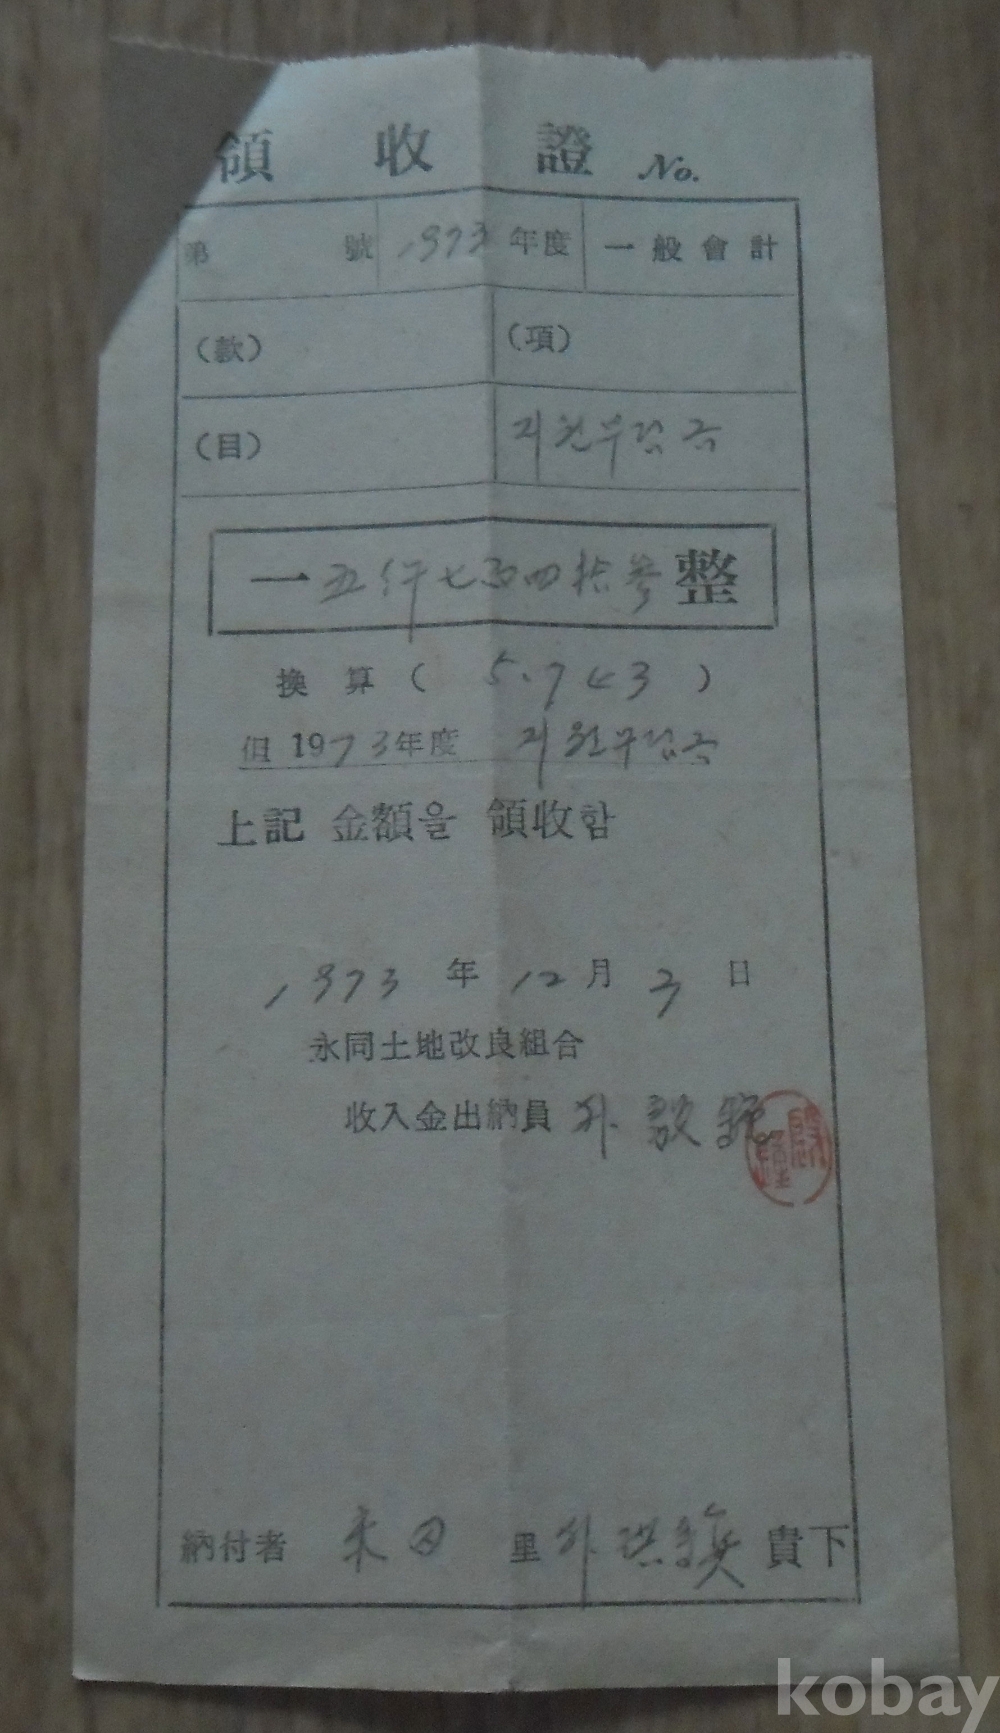 領 收 證 No.
第 號 1973 年度 一般會計
(款) (項)
(目) 지원부담금
一 五仟七百四拾參 整
換 算 ( 5.743 )
但 1973年度 지원부담금
上記 金額을 領收함
1973 年 12 月 3 日
永同土地改良組合
收入金出納員 朴
納付者 里 朴 貴下
kobay